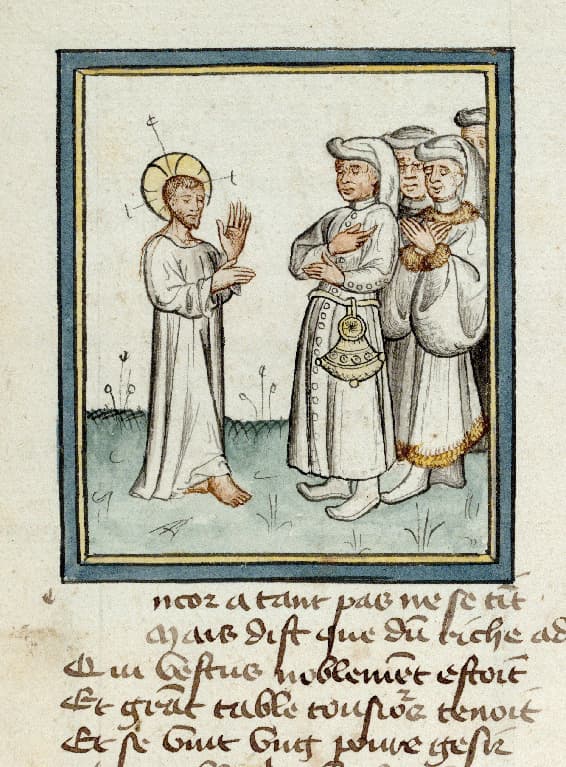 ncor a tant pas ne se tût
Mais dist que dũ riche ad
Qui vestus noblemẽt estoit
Et grãt table tousiors tenoit
Et se vint vng poure gesir